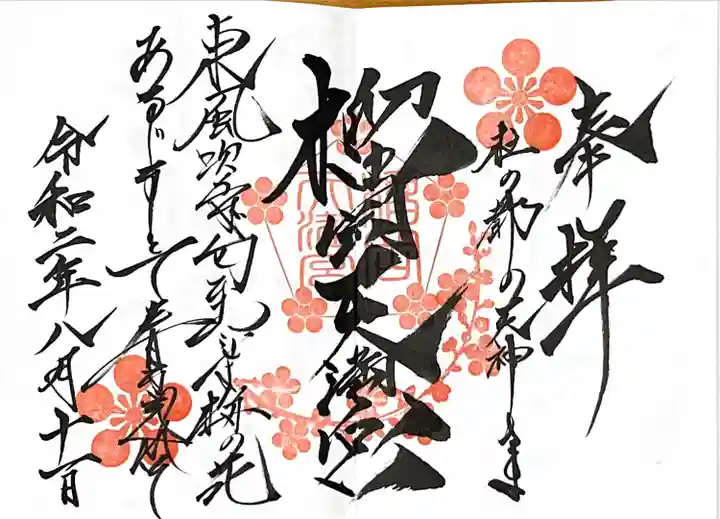 奉拝
杜の都の天神さま
榴岡天満宮
東風吹かば匂ひおこせよ梅の花
あるじなしとて春な忘れそ
令和二年八月十一日